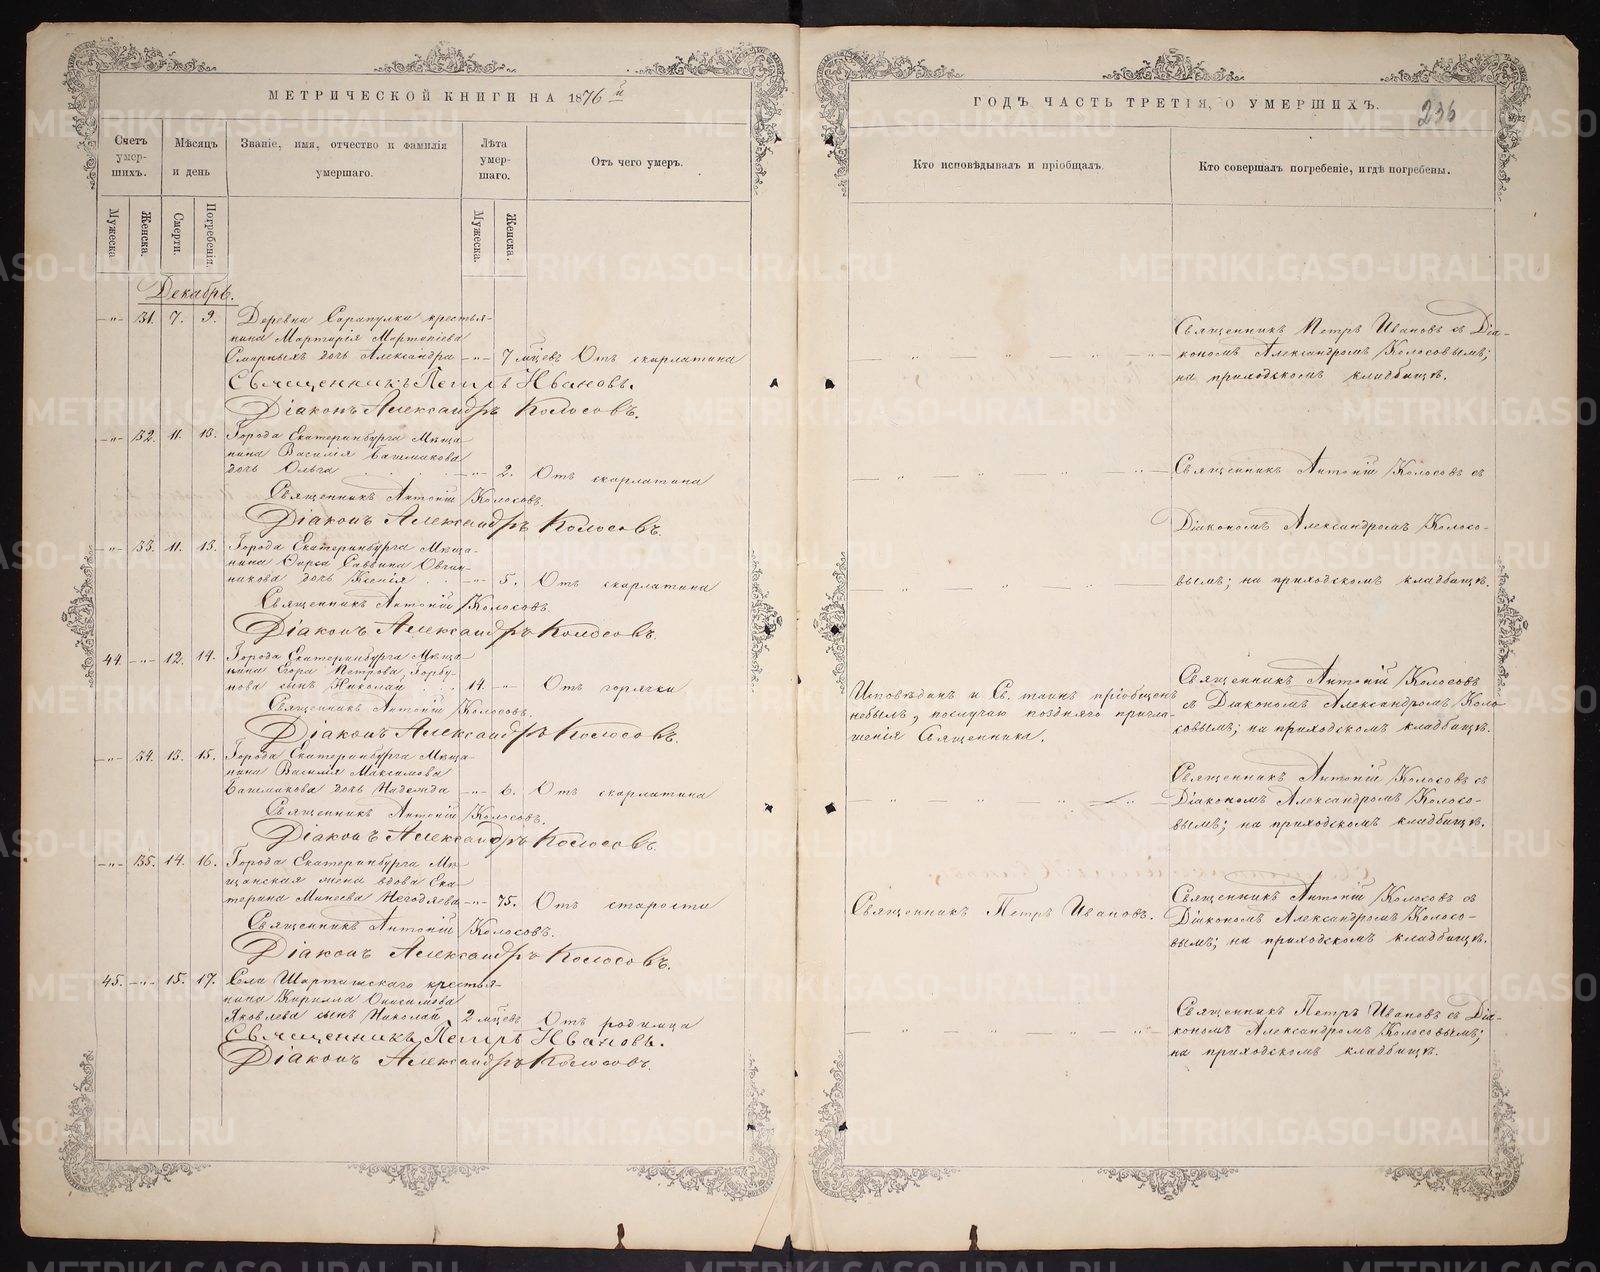 МЕТРИЧЕСКОЙ КНИГИ НА 1876 й
ГОДЪ, ЧАСТЬ ТРЕТІЯ, О УМЕРШИХЪ.
236
Счетъ умер-шихъ.
Мѣсяцъ и день
Званіе, имя, отчество и фамилія умершаго.
Лѣта умер-шаго.
Отъ чего умеръ.
Кто исповѣдывалъ и пріобщалъ.
Кто совершалъ погребеніе, и гдѣ погребены.
Мужеска
Женска.
Смерти.
Погребенія.
Мужеска.
Женска.
Декабрь.
-"- 31. 7. 9. Деревни Сарапулки крестья-
нина Мартирія Мартиріева
Смирныхъ дочь Александра -"- 7 мцевъ Отъ скарлатина
Священникъ Петръ Ивановъ.
Діаконъ Александръ Колосовъ.
Священникъ Петръ Ивановъ съ Діа-
кономъ Александромъ Колосовымъ;
на приходскомъ кладбищѣ.
-"- 32. 11. 13. Города Екатеринбурга Мѣща-
нина Василія Башмакова
дочь Ольга -"- 2. Отъ скарлатина
Священникъ Антоній Колосовъ.
Діаконъ Александръ Колосовъ.
Священникъ Антоній Колосовъ съ
Діакономъ Александромъ Колосо-
вымъ; на приходскомъ кладбищѣ.
-"- 33. 11. 13. Города Екатеринбурга Мѣща-
нина Фирса Саввина Овчин-
никова дочь Ксенія -"- 5. Отъ скарлатина
Священникъ Антоній Колосовъ.
Діаконъ Александръ Колосовъ.
44. -"- 12. 14. Города Екатеринбурга Мѣща-
нина Егора Петрова Горбу-
нова сынъ Николай 14. -"- Отъ горячки
Священникъ Антоній Колосовъ.
Діаконъ Александръ Колосовъ.
Исповѣданъ и Св. таинъ пріобщенъ
небылъ, послучаю поздняго пригла-
шенія Священника.
Священникъ Антоній Колосовъ
съ Діакономъ Александромъ Коло-
совымъ; на приходскомъ кладбищѣ.
-"- 34. 13. 15. Города Екатеринбурга Мѣща-
нина Василія Максимова
Башмакова дочь Надежда -"- 6. Отъ скарлатина
Священникъ Антоній Колосовъ.
Діаконъ Александръ Колосовъ.
Священникъ Антоній Колосовъ съ
Діакономъ Александромъ Колосо-
вымъ; на приходскомъ кладбищѣ.
-"- 35. 14. 16. Города Екатеринбурга Мѣ-
щанская жена вдова Ека-
терина Минеева Негодяева -"- 75. Отъ старости
Священникъ Антоній Колосовъ.
Діаконъ Александръ Колосовъ.
Священникъ Петръ Ивановъ.
Священникъ Антоній Колосовъ съ
Діакономъ Александромъ Колосо-
вымъ; на приходскомъ кладбищѣ.
45. -"- 15. 17. Села Шарташскаго крестья-
нина Кирилла Онисимова
Яковлева сынъ Николай 2 мцевъ Отъ родимца
Священникъ Петръ Ивановъ.
Діаконъ Александръ Колосовъ.
Священникъ Петръ Ивановъ съ Діа-
кономъ Александромъ Колосовымъ;
на приходскомъ кладбищѣ.
METRIKI.GASO-URAL.RU